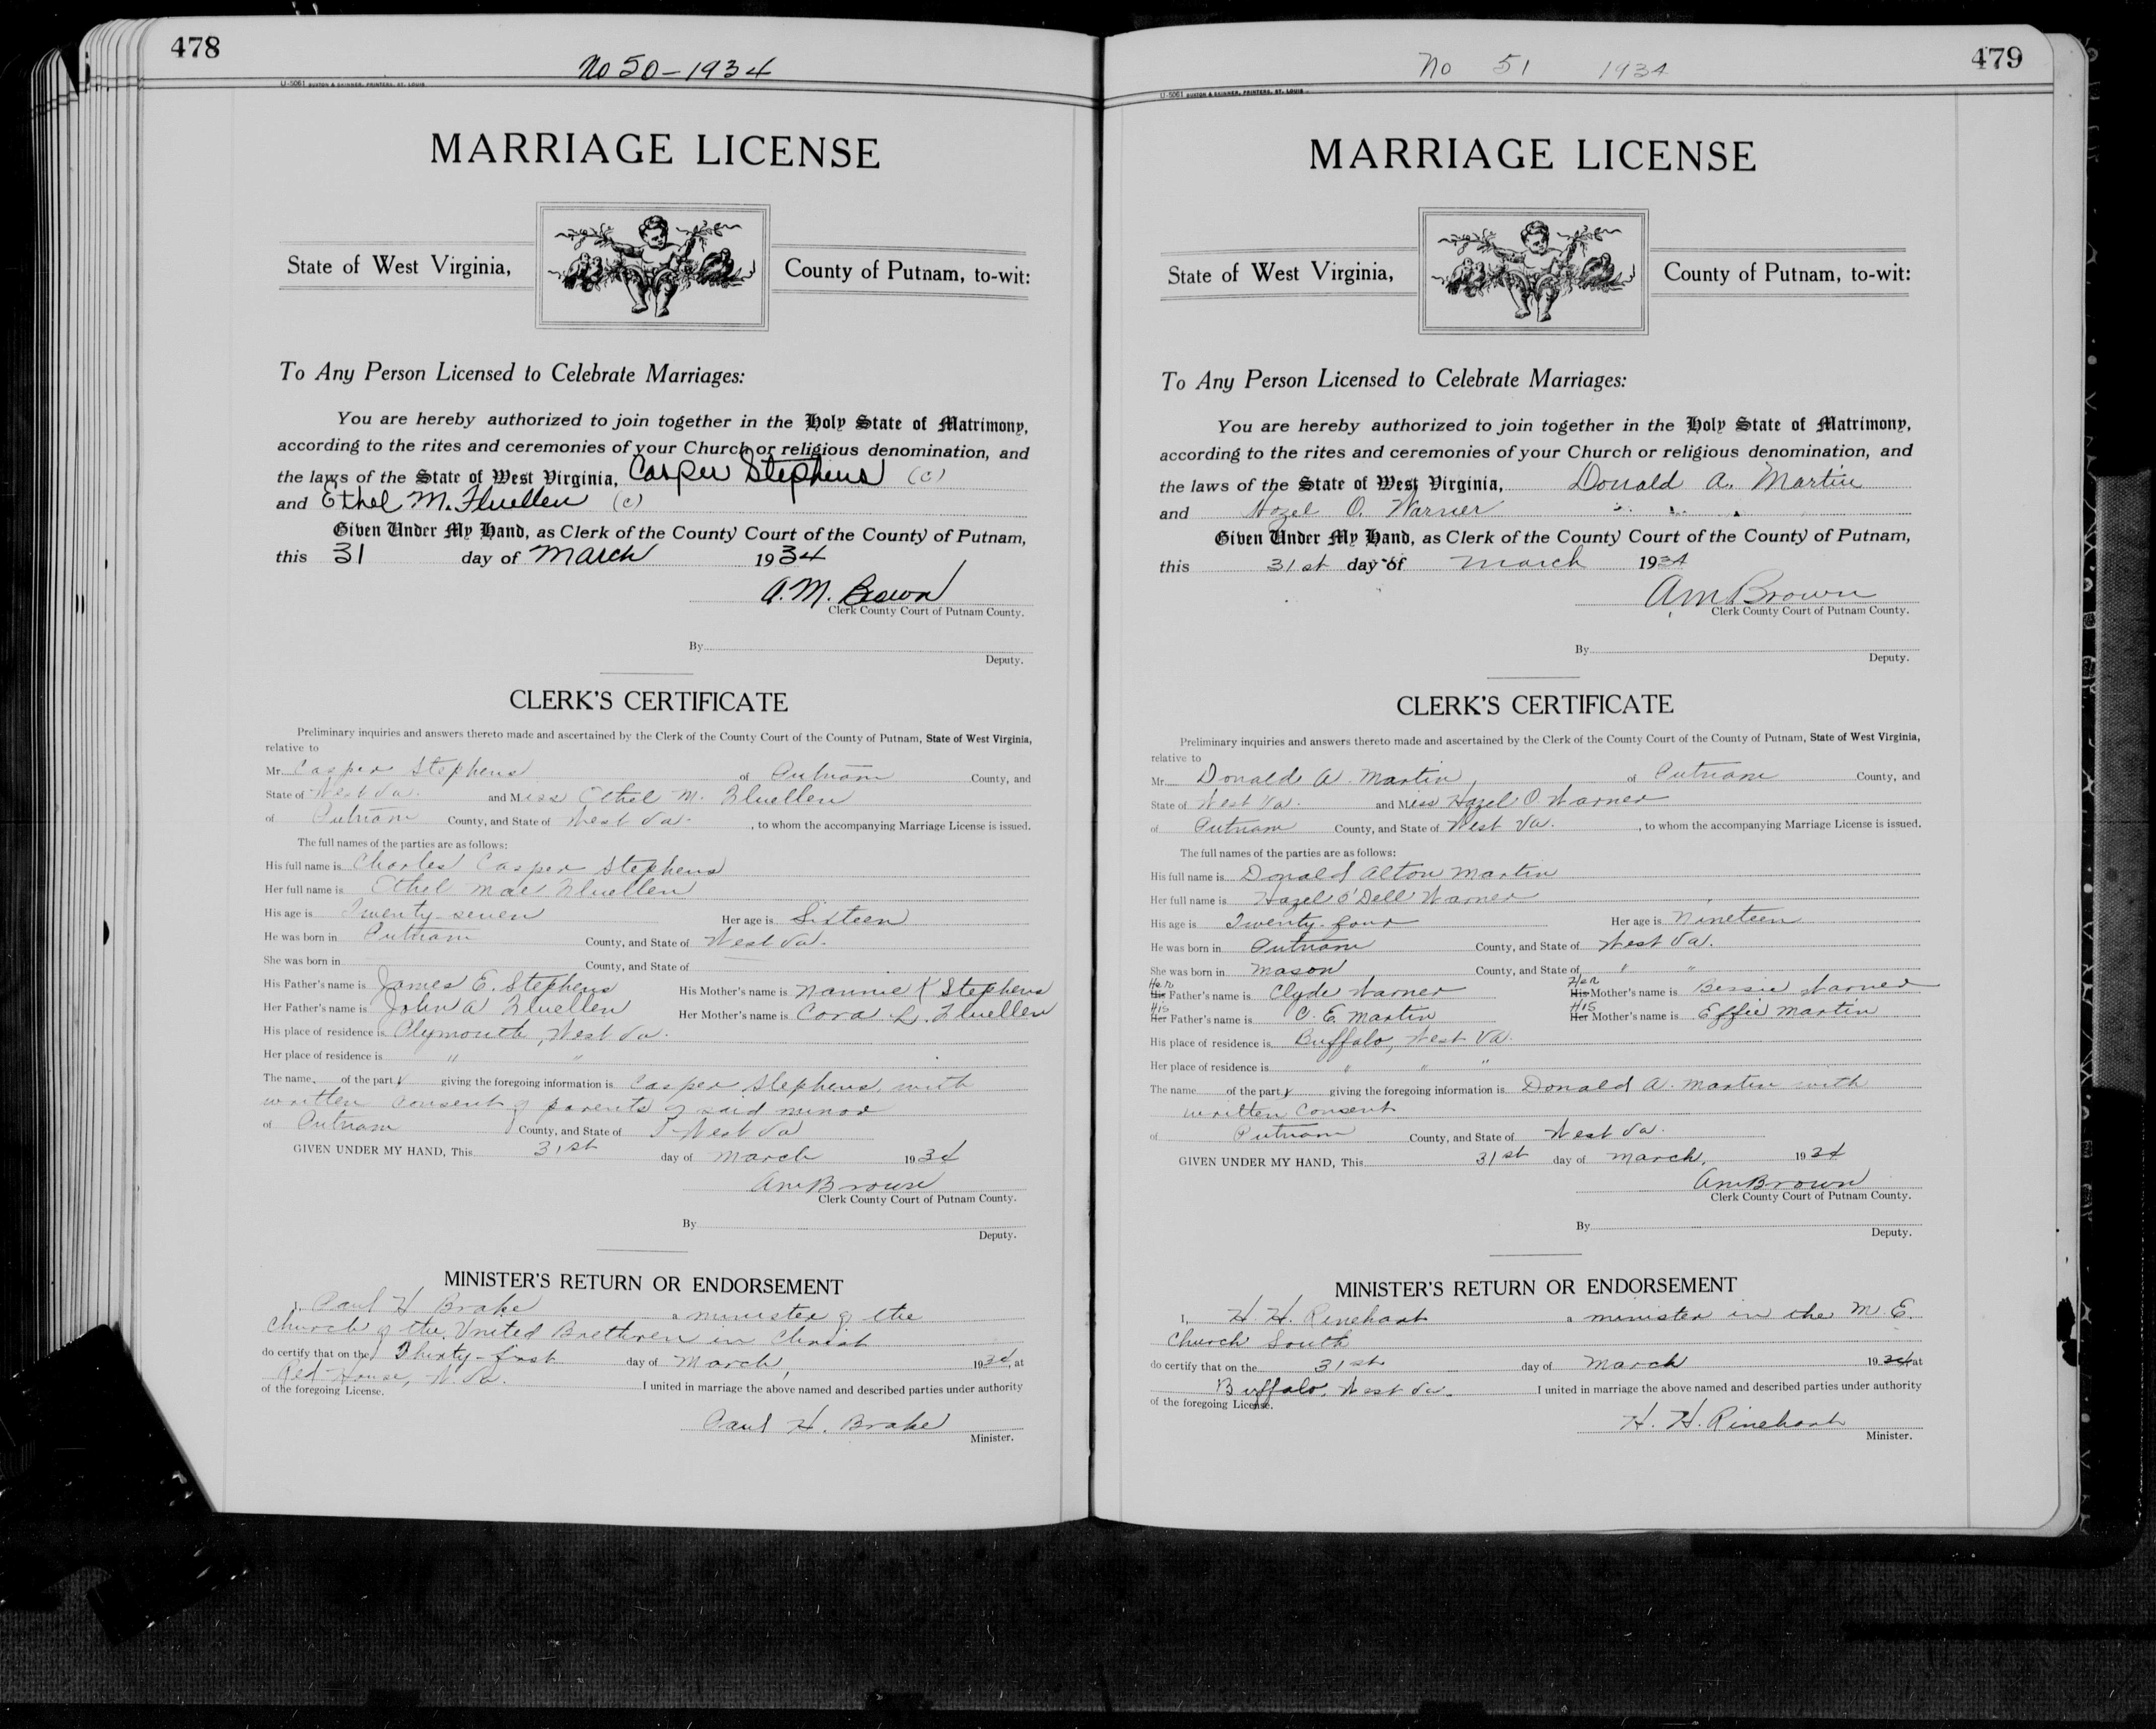 478
No 50-1934
U-5061 BUXTON & SKINNER, PRINTERS, ST. LOUIS
MARRIAGE LICENSE
State of West Virginia, County of Putnam, to-wit:
To Any Person Licensed to Celebrate Marriages:
You are hereby authorized to join together in the Holy State of Matrimony,
according to the rites and ceremonies of your Church or religious denomination, and
the laws of the State of West Virginia, Casper Stephens (c)
and Ethel M. Fluellen (c)
Given Under My Hand, as Clerk of the County Court of the County of Putnam,
this 31 day of March 1934
A. M. Brown
Clerk County Court of Putnam County.
By
Deputy.
CLERK'S CERTIFICATE
Preliminary inquiries and answers thereto made and ascertained by the Clerk of the County Court of the County of Putnam, State of West Virginia,
relative to
Mr. Casper Stephens of Putnam County, and
State of West Va. and Miss Ethel M. Fluellen
of Putnam County, and State of West Va. , to whom the accompanying Marriage License is issued.
The full names of the parties are as follows:
His full name is Charles Casper Stephens
Her full name is Ethel Mae Fluellen
His age is Twenty-seven Her age is Sixteen
He was born in Putnam County, and State of West Va.
She was born in County, and State of
His Father's name is James E. Stephens His Mother's name is Nannie K Stephens
Her Father's name is John A Fluellen Her Mother's name is Cora L. Fluellen
His place of residence is Plymouth, West Va.
Her place of residence is " "
The name of the party giving the foregoing information is Casper Stephens, with
written consent of parents of said minor
of Putnam County, and State of West Va
GIVEN UNDER MY HAND, This 31st day of March 1934
AM Brown
Clerk County Court of Putnam County.
By
Deputy.
MINISTER'S RETURN OR ENDORSEMENT
I, Paul H Brake a minister of the
Church of the United Brethren in Christ
do certify that on the Thirty-first day of March, 1934, at
Red House, W. Va. I united in marriage the above named and described parties under authority
of the foregoing License.
Paul H. Brake
Minister.
479
No 51 1934
U-5061 BUXTON & SKINNER, PRINTERS, ST. LOUIS
MARRIAGE LICENSE
State of West Virginia, County of Putnam, to-wit:
To Any Person Licensed to Celebrate Marriages:
You are hereby authorized to join together in the Holy State of Matrimony,
according to the rites and ceremonies of your Church or religious denomination, and
the laws of the State of West Virginia, Donald A. Martin
and Hazel O. Warner
Given Under My Hand, as Clerk of the County Court of the County of Putnam,
this 31st day of March 1934
AM Brown
Clerk County Court of Putnam County.
By
Deputy.
CLERK'S CERTIFICATE
Preliminary inquiries and answers thereto made and ascertained by the Clerk of the County Court of the County of Putnam, State of West Virginia,
relative to
Mr. Donald A. Martin, of Putnam County, and
State of West Va. and Miss Hazel O. Warner
of Putnam County, and State of West Va. , to whom the accompanying Marriage License is issued.
The full names of the parties are as follows:
His full name is Donald Alton Martin
Her full name is Hazel O'Dell Warner
His age is Twenty-four Her age is Nineteen
He was born in Putnam County, and State of West Va.
She was born in Mason County, and State of " "
Her His Father's name is Clyde Warner Her His Mother's name is Bessie Warner
His Her Father's name is C. E. Martin His Her Mother's name is Effie Martin
His place of residence is Buffalo, West Va.
Her place of residence is " " "
The name of the party giving the foregoing information is Donald A. Martin with
written consent
of Putnam County, and State of West Va.
GIVEN UNDER MY HAND, This 31st day of March, 1934
AM Brown
Clerk County Court of Putnam County.
By
Deputy.
MINISTER'S RETURN OR ENDORSEMENT
I, H. H. Rinehart a minister in the M. E.
Church South
do certify that on the 31st day of March 1934 at
Buffalo, West Va. I united in marriage the above named and described parties under authority
of the foregoing License.
H. H. Rinehart
Minister.